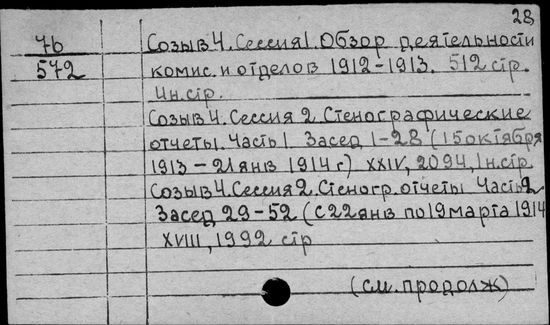 28
76
572
Созыв 4. Сессия 1. Обзор деятельности
комис. и отделов 1912-1913. 512 стр.
1н.стр.
Созыв 4. Сессия 2. Стенографические
отчеты. Часть 1 Засед 1-28 (15 октября
1913-21 янв 1914 г) XXIV, 2094, 1н.стр.
Созыв 4. Сессия 2. Стеногр. отчеты Часть 2
Засед 29-52 (с 22 янв по 19 марта 1914
XVIII, 1992 стр
(см. продолж)